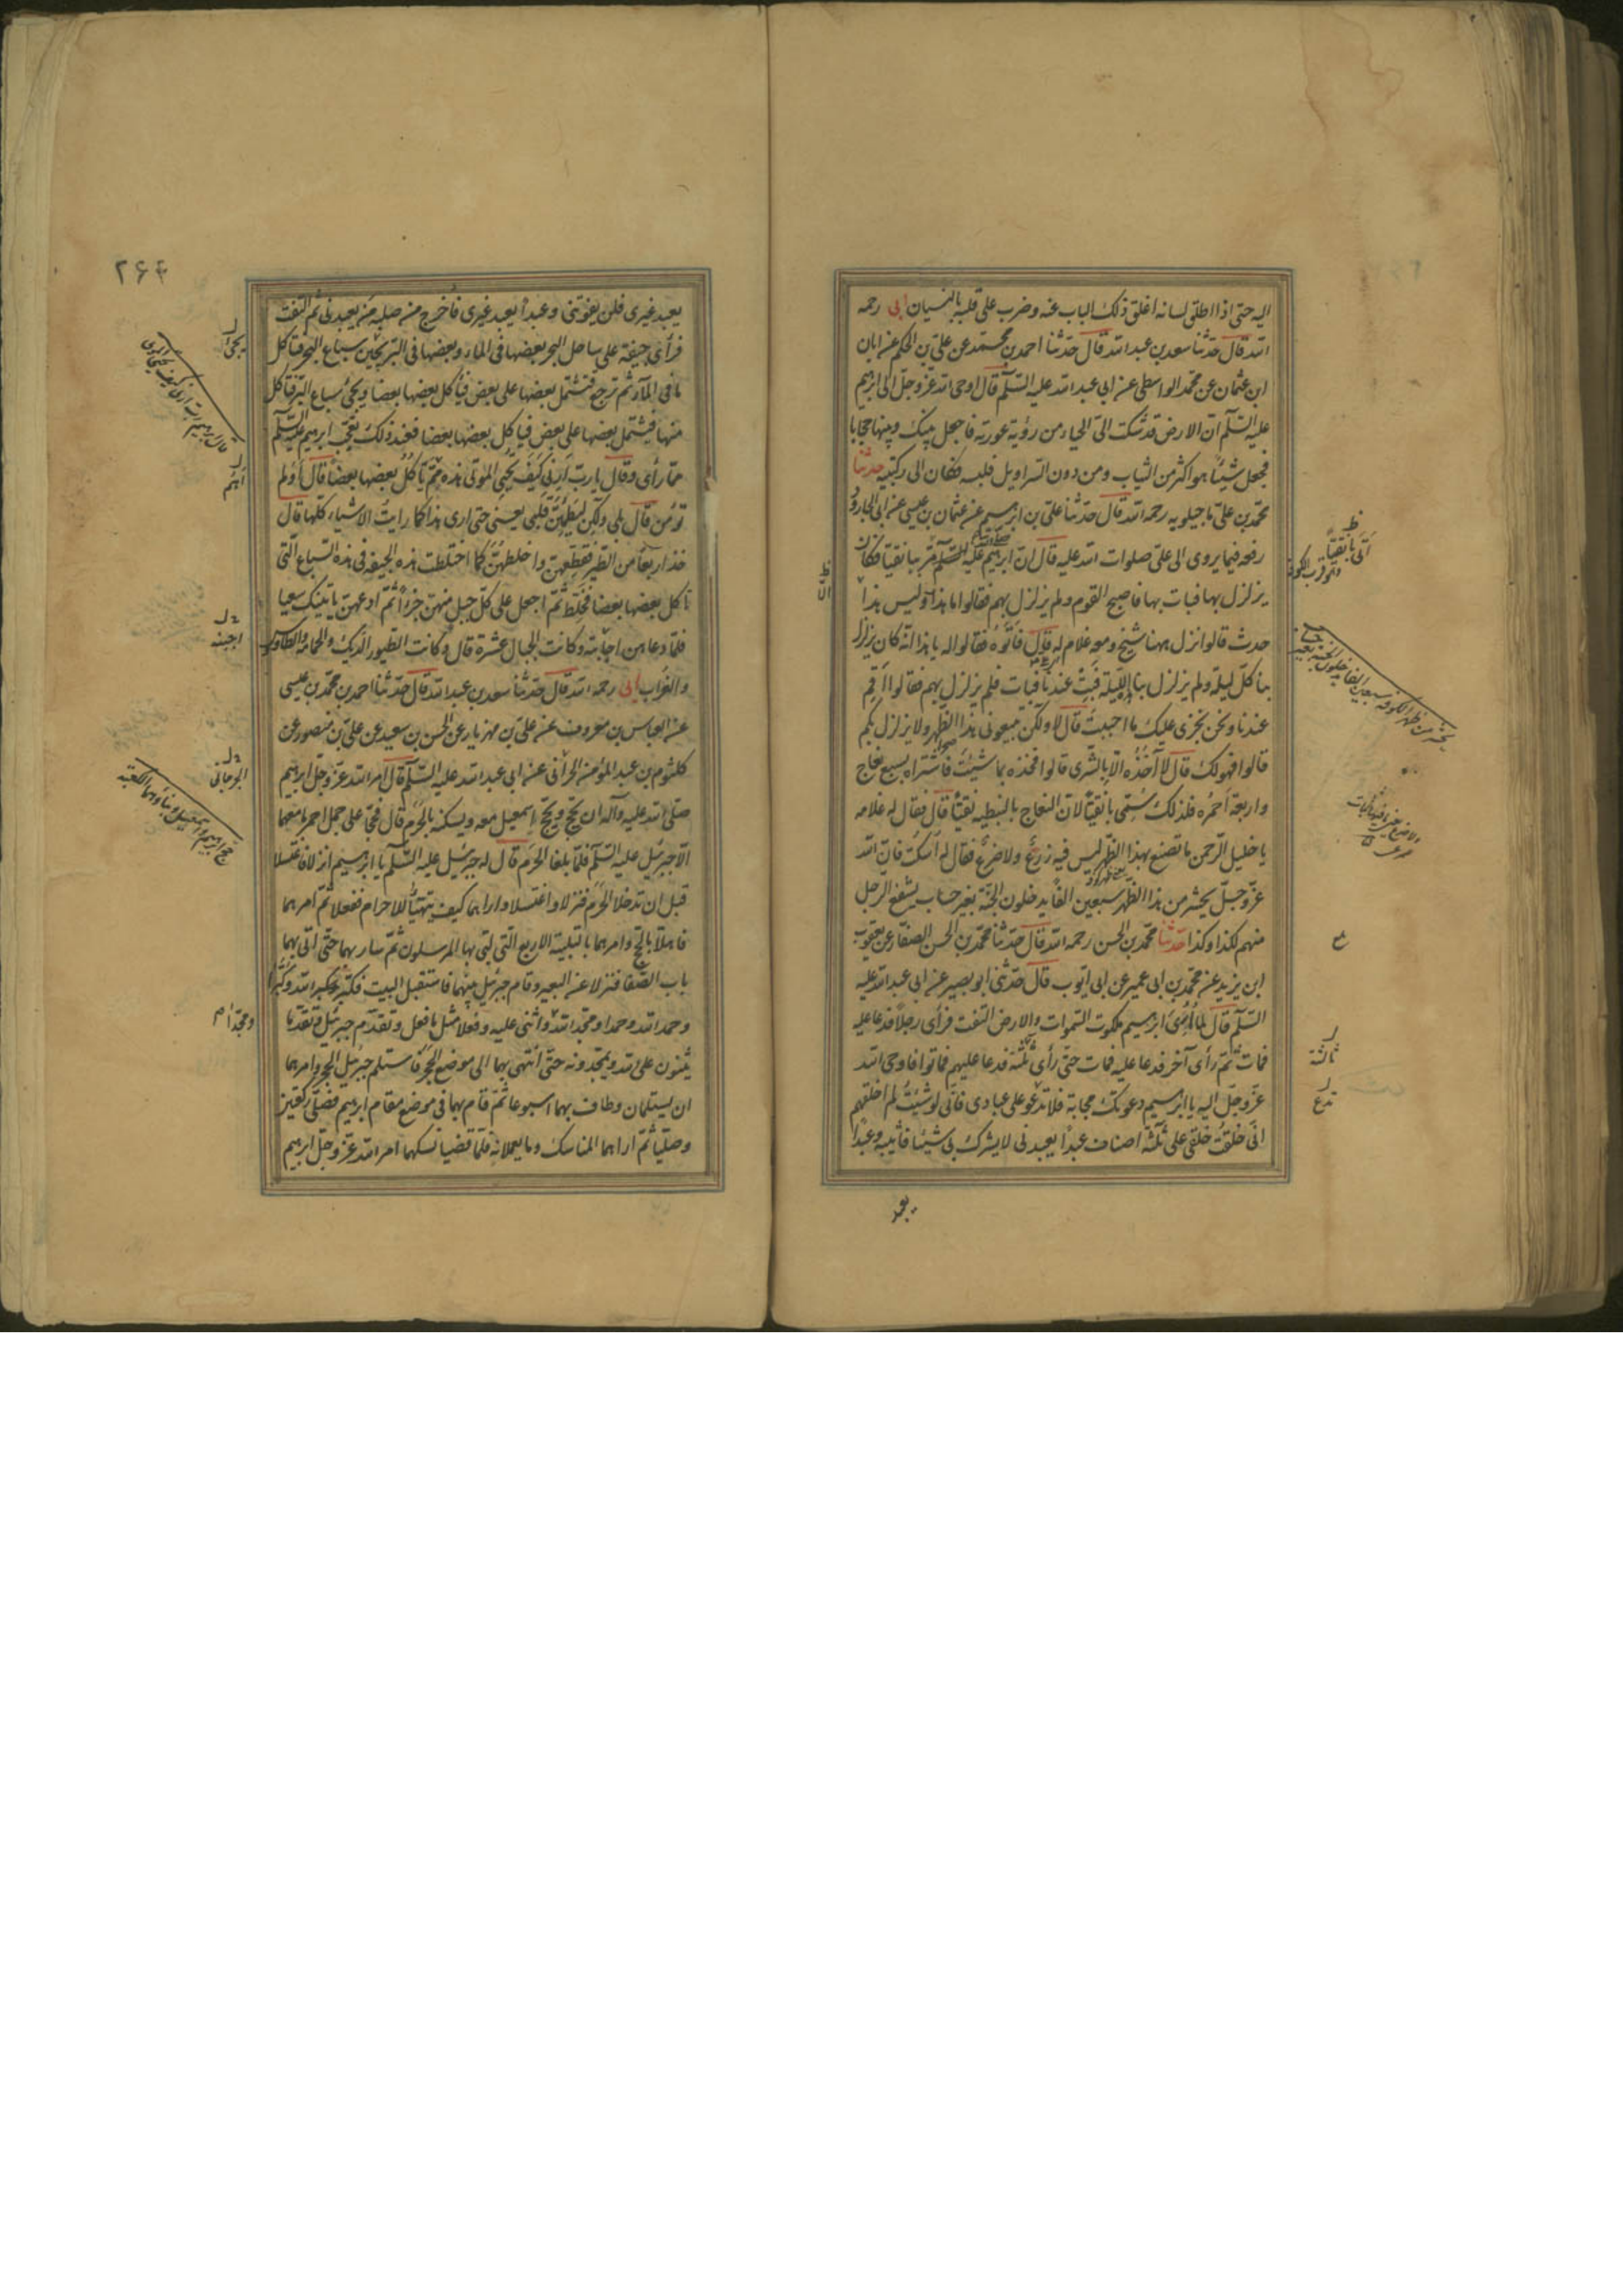 اليه حتى اذا اطلق لسانه اغلق ذلك الباب عنه وضرب على قلبه بالنسيان ابى رحمه
الله قال حدثنا سعد بن عبد الله قال حدثنا احمد بن محمد عن على بن الحكم عن ابان
ابن عثمان عن محمد الواسطى عن ابى عبد الله عليه السلم قال اوحى الله عز وجل الى ابرهيم
عليه السلم ان الارض قد شكت الىّ الحياء من رؤية عورتك فاجعل بينك وبينها حجابا
فجعل شيئا هو اكثر من الثياب ومن دون السراويل فلبسه فكان الى ركبتيه حدثنا
محمد بن على ماجيلويه رحمه الله قال حدثنا على بن ابرهيم عن عثمان بن عيسى عن ابى الجارود
رفعه فيما يروى الى على صلوات الله عليه قال ان ابرهيم عليه السلم مر ببانقيا فكان
يزلزل بها فبات بها فاصبح القوم ولم يزلزل بهم فقالوا ما هذا وليس هذا
حدث قالوا نزل ههنا شيخ ومعه غلام له قال فاتوه فقالوا له يا هذا انه كان يزلزل
بنا كل ليلة ولم يزلزل بنا الليلة فبت عندنا فبات فلم يزلزل بهم فقالوا اقم
عندنا ونحن نجرى عليك ما احببت قال لا ولكن تبيعونى هذا الظهر ولا يزلزل بكم
قالوا فهو لك قال لا آخذه الا بالشرى قالوا فخذه بما شئت فاشتراه بسبع نعاج
واربعة احمره فلذلك سمى بانقيا لان النعاج بالنبطيه نقيا قال فقال له غلامه
يا خليل الرحمن ما تصنع بهذا الظهر ليس فيه زرع ولا ضرع فقال له اسكت فان الله
عز وجل يحشر من هذا الظهر سبعين الفا يدخلون الجنة بغير حساب يشفع الرجل
منهم لكذا وكذا حدثنا محمد بن الحسن رحمه الله قال حدثنا محمد بن الحسن الصفار عن يعقوب
ابن يزيد عن محمد بن ابى عمير عن ابى ايوب قال حدثنى ابو بصير عن ابى عبد الله عليه
السلم قال لما اُرى ابرهيم ملكوت السموات والارض التفت فرأى رجلا فدعا عليه
فمات ثم رأى آخر فدعا عليه فمات حتى رأى ثلثة فدعا عليهم فماتوا فاوحى الله
عز وجل اليه يا ابرهيم دعوتك مجابة فلا تدعو على عبادى فانى لو شئت لم اخلقهم
انى خلقت خلقى على ثلثة اصناف عبدا يعبدنى لا يشرك بى شيئا فاثيبه وعبدا
يعبد
اتى بانقيا
يحشر من ظهر الكوفة سبعين الفا يدخلون الجنة بغير حساب
ثالثة
تدع
۲۶۴
يعبد غيرى فلن يفوتنى وعبدا يعبد غيرى فاخرج من صلبه من يعبدنى ثم التفت
فرأى جيفة على ساحل البحر بعضها فى الماء وبعضها فى البر يجئ سباع البحر فتأكل
ما فى الماء ثم ترجع فتشتمل بعضها على بعض فيأكل بعضها بعضا ويجئ سباع البر فتأكل
منها فيشتمل بعضها على بعض فيأكل بعضها بعضا فعند ذلك تعجب ابرهيم عليه السلم
مما رأى وقال يا رب ارنى كيف تحيى الموتى هذه امم يأكل بعضها بعضا قال اولم
تؤمن قال بلى ولكن ليطمئن قلبى يعنى حتى ارى هذا كما رايت الاشياء كلها قال
خذ اربعا من الطير فقطعهن واخلطهن كما اختلطت هذه الجيفة فى هذه السباع التى
تأكل بعضها بعضا فخلط ثم اجعل على كل جبل منهن جزءا ثم ادعهن يأتينك سعيا
فلما دعاهن اجابته وكانت الجبال عشرة قال وكانت الطيور الديك والحمامة والطاوس
والغراب ابى رحمه الله قال حدثنا سعد بن عبد الله قال حدثنا احمد بن محمد بن عيسى
عن العباس بن معروف عن على بن مهزيار عن الحسن بن سعيد عن على بن منصور عن
كلثوم بن عبد المؤمن الحرانى عن ابى عبد الله عليه السلم قال امر الله عز وجل ابرهيم
صلى الله عليه وآله ان يحج ويحج اسمعيل معه ويسكنه بالحرم قال فحجا على جمل احمر ما معهما
الا جبرئيل عليه السلم فلما بلغا الحرم قال له جبرئيل عليه السلم يا ابرهيم انزلا فاغتسلا
قبل ان تدخلا الحرم فنزلا واغتسلا واراهما كيف يتهيأ للاحرام ففعلا ثم امرهما
فاهلا بالحج وامرهما بالتلبية الاربع التى لبى بها المرسلون ثم سار بهما حتى اتى بهما
باب الصفا فنزلا عن البعير وقام جبرئيل بينهما فاستقبل البيت فكبر وكبرا
وحمد الله وحمدا ومجد الله واثنى عليه وفعلا مثل ما فعل وتقدم جبرئيل وتقدما
يثنون على الله ويمجدونه حتى انتهى بهما الى موضع الحجر فاستلم جبرئيل الحجر وامرهما
ان يستلمان وطاف بهما اسبوعا ثم قام بهما فى موضع مقام ابرهيم فصلى ركعتين
وصليا ثم اراهما المناسك وما يعملانه فلما قضيا نسكهما امر الله عز وجل ابرهيم
امم
اجبنه
الجرجانى
حج ابرهيم واسمعيل وبناؤهما الكعبة
ومجدا